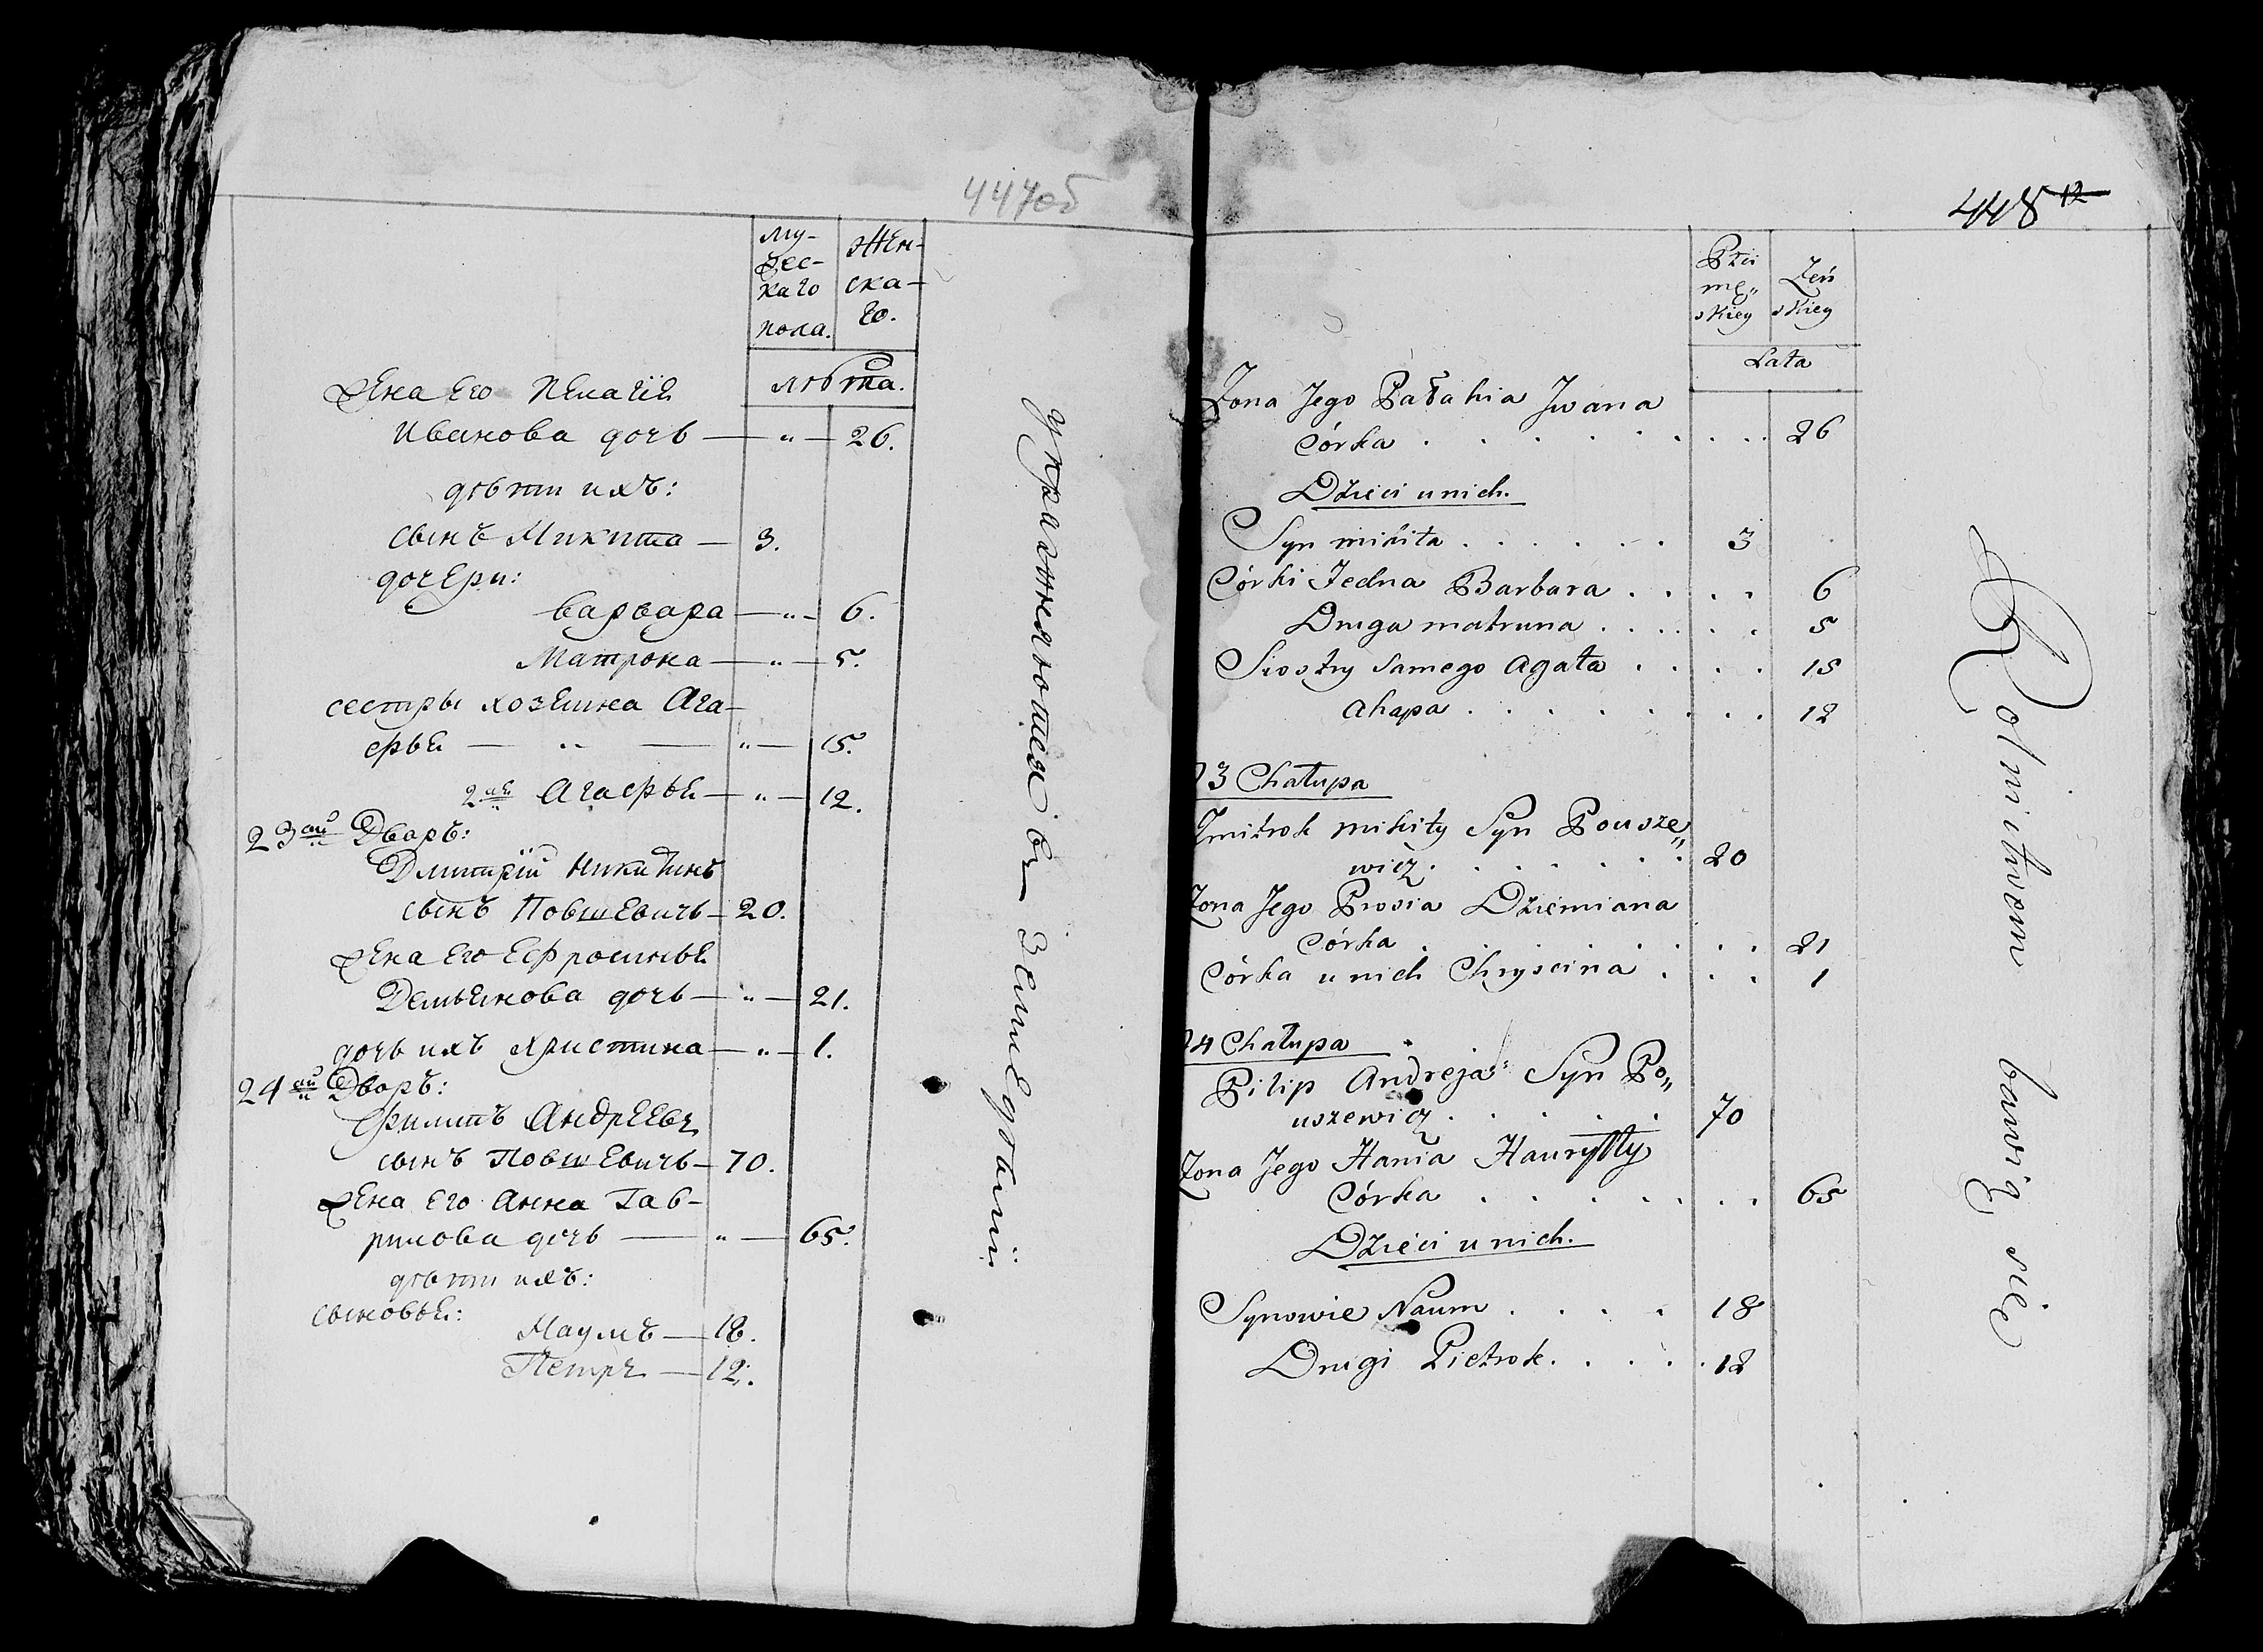 447об
му-
жес-
каго
пола.
Жен-
ска-
го.
лѣта.
Жена его Пелагія
Иванова дочь — " — 26.
дѣти ихъ:
сынъ Микита — 3.
дочери:
Варвара — " — 6.
Матрона — " — 5.
сестры хозяина Ага-
фья — " — " — 15.
2ая Агафья — " — 12.
23ий Дворъ:
Дмитрій Никитинъ
сынъ Повшевичъ — 20.
Жена его Ефросинья
Демьянова дочь — " — 21.
дочь ихъ Христина — " — 1.
24ий Дворъ:
Филипъ Андреевъ
сынъ Повшевичъ — 70.
Жена его Анна Гав-
рилова дочь — " — 65.
дѣти ихъ:
сыновья:
Наумъ — 18.
Петръ — 12.
упражняются въ земледѣліи
448 12
Płci
mę„
skiey
Żeń
skiey
Lata
Żona Jego Pałahia Jwana
Córka . . . . . . . . 26
Dzieci u nich.
Syn mikita . . . . . . 3
Córki Jedna Barbara . . . . 6
Druga matruna . . . . . . 5
Siostry Samego Agata . . . . 15
Ahapa . . . . . . . . 12
23 Chałupa
Zmitrok mikity Syn Pousze„
wicz . . . . . . 20
Żona Jego Prosia Dziemiana
Córka . . . . . . . 21
Córka u nich Chryscina . . . 1
24 Chałupa
Pilip Andreja Syn Po„
uszewicz . . . . . 70
Żona Jego Hanna Hauryły
Córka . . . . . . . 65
Dzieci u nich.
Synowie Naum . . . . 18
Drugi Pietrok . . . . . 12
Rolnictwem bawią się